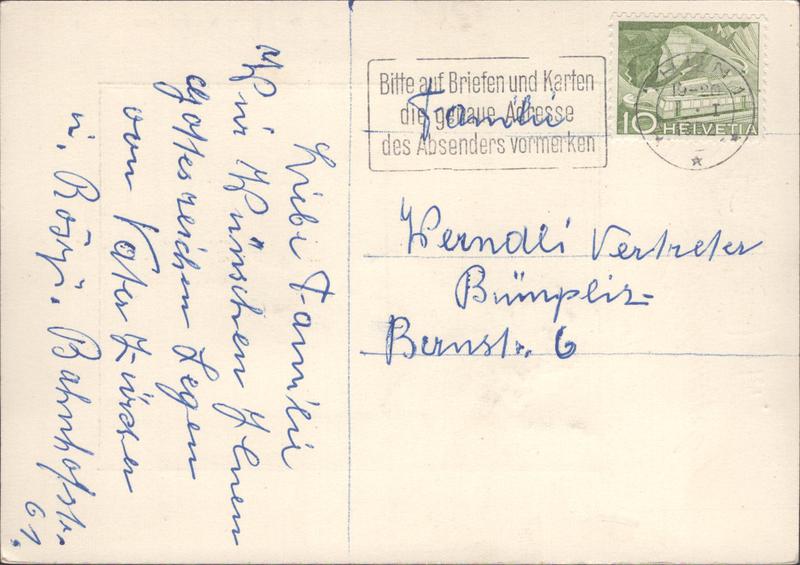 Liebi Familii
Wir Wünschen Ihnen
Gottesreichen Segen
von Vater Zürcher
u. Rösy. Bahnhofstr.
61.
Bitte auf Briefen und Karten
die genaue Adresse
des Absenders vormerken
THUN 1
10 HELVETIA
Familie
Werndli Vertreter
Bümpliz
Bernstr. 6